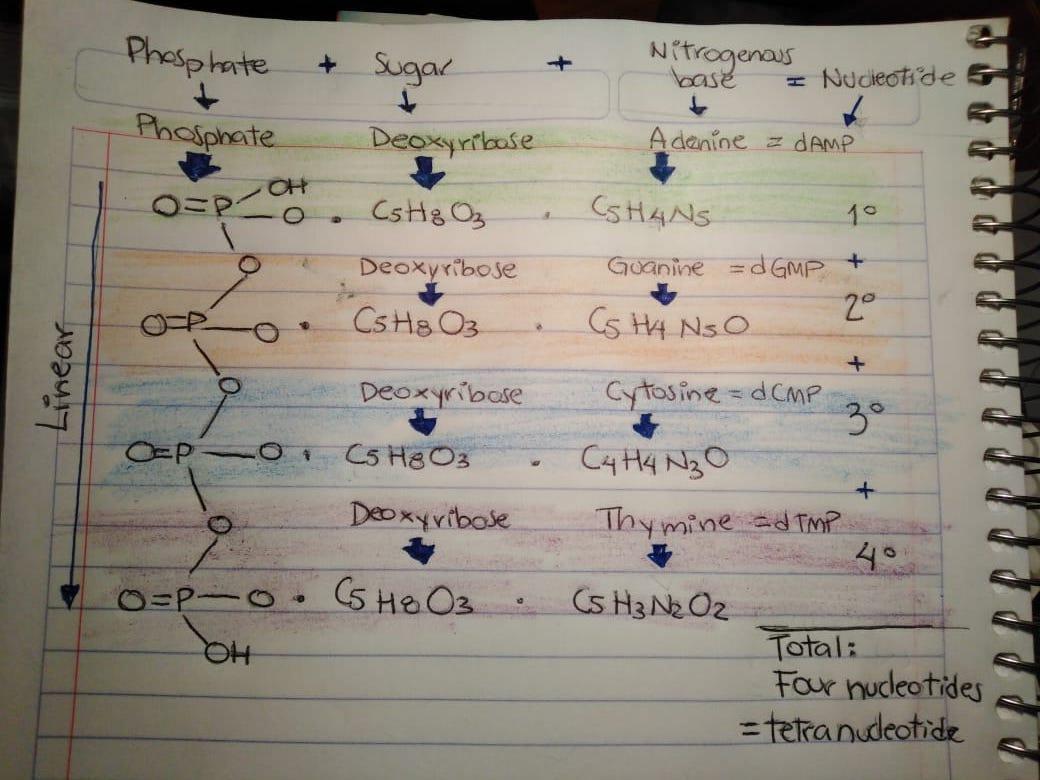 Phosphate + Sugar + Nitrogenous base = Nucleotide
Phosphate Deoxyribose Adenine = dAMP
O=P OH
O . C5H8O3 . C5H4N5 1º
O Deoxyribose Guanine = dGMP +
O=P—O . C5H8O3 . C5H4N5O 2º
+
O Deoxyribose Cytosine = dCMP 3º
O=P—O . C5H8O3 . C4H4N3O
+
O Deoxyribose Thymine = dTMP
4º
O=P—O . C5H8O3 . C5H3N2O2
OH
Total:
Four nucleotides
= tetranucleotide
Linear